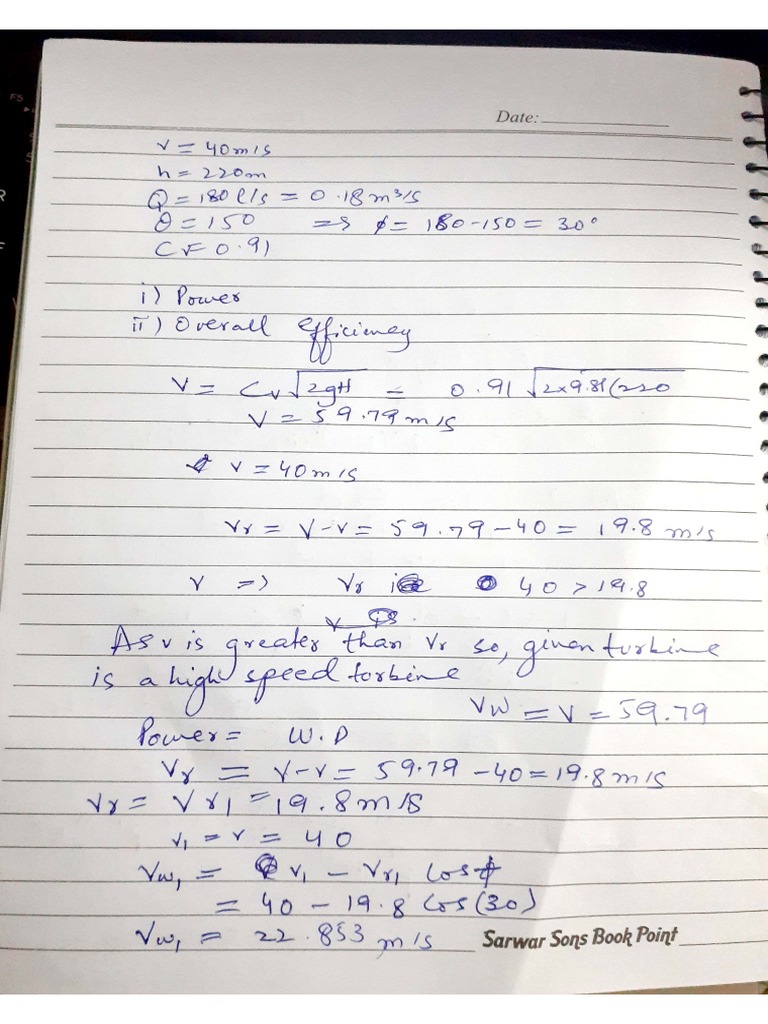 Date:
v = 40m/s
h = 220m
Q = 180 l/s = 0.18 m³/s
θ = 150 => ϕ = 180-150 = 30°
Cv= 0.91
i) Power
ii) Overall efficiency
V = Cv√2gH = 0.91 √2x9.81(220
V = 59.79 m/s
v = 40m/s
Vr = V-v = 59.79 - 40 = 19.8 m/s
v => Vr is 40 > 19.8
v is
As v is greater than Vr so, given turbine
is a high speed torbine
Vw = V = 59.79
Power = W.D
Vr = V-v = 59.79 - 40 = 19.8 m/s
Vr = Vr1 = 19.8 m/s
v1 = v = 40
Vw1 = v1 - Vr1 Cosϕ
= 40 - 19.8 Cos(30)
Vw1 = 22.853 m/s
Sarwar Sons Book Point